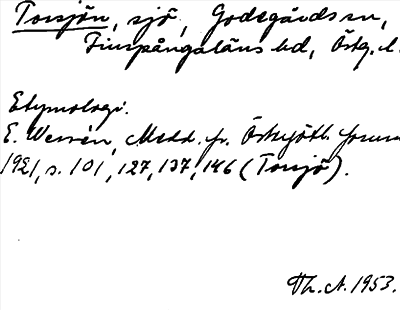 Torsjön, sjö, Godegårds sn,
Finspångaläns hd, Östg. l.
Etymologi.
E. Wessén, Medd. fr. Östergötl. fornm
1921, s. 101, 127, 137, 146 (Torsjö).
Th. A. 1953.